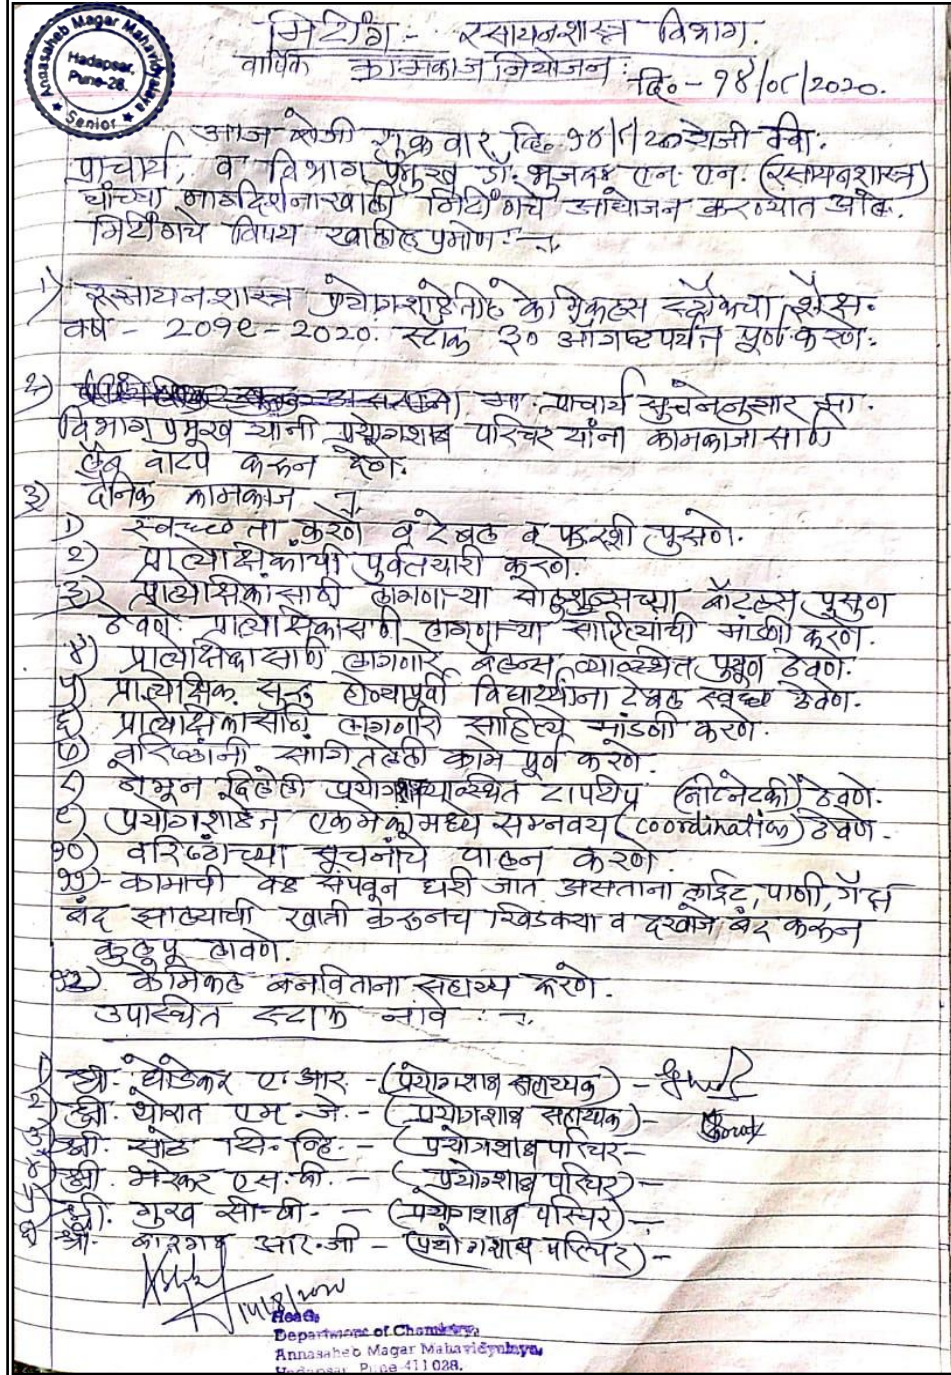 Annasaheb Magar Mahavidyalaya
Hadapsar,
Pune-28.
Senior
मिटींग - रसायनशास्त्र विभाग.
वार्षिक कामकाज नियोजन : दि. - १४/०८/2020.
आज रोजी शुक्रवार दि. १४/८/२० रोजी
प्राचार्य, व विभाग प्रमुख डॉ. भुजबळ एन. एन. (रसायनशास्त्र)
यांच्या मार्गदर्शनाखाली मिटींगचे आयोजन करण्यात आले.
मिटींगचे विषय खालील प्रमाणे :-
१) रसायनशास्त्र प्रयोगशाळेतील केमिकल्स स्टॉकच्या
वर्ष - 20१९ - 2020. स्टाक ३० आगष्टपर्यंत पूर्ण करणे.
२) मा. प्राचार्य सुचनेनुसार मा.
विभाग प्रमुख यांनी प्रयोगशाळा परिचर यांना कामकाजासाठी
लॅब वाटप करून देणे.
३) दैनिक कामकाज
१) स्वच्छता करणे व टेबल व फरशी पुसणे.
२) प्रात्येक्षिकांची पुर्वतयारी करणे.
३) प्रात्येक्षिकासाठी लागणाऱ्या सोलुशन्सच्या बॉटल्स पुसुन
ठेवणे. प्रात्येक्षिकासाठी लागणाऱ्या साहित्यांची मांडणी करणे.
४) प्रात्येक्षिकासाठी लागणारे बॅलन्स व्यवस्थित पुसुन ठेवणे.
५) प्रात्येक्षिक सुरु होण्यापूर्वी विद्यार्थ्यांना टेबल स्वच्छ ठेवणे.
६) प्रात्येक्षिकासाठी लागणारी साहित्ये मांडणी करणे.
७) वरिष्ठांनी सांगितलेली कामे पूर्ण करणे.
८) नेमून दिलेली प्रयोगशाळा व्यवस्थित टापटीप (नीटनेटकी) ठेवणे.
९) प्रयोगशाळेत एकमेकांमध्ये समनवय (coordination) ठेवणे.
१०) वरिष्ठांच्या सूचनांचे पालन करणे.
११) - कामाची वेळ संपवून घरी जात असताना लाईट, पाणी, गॅस
बंद झाल्याची खात्री करूनच खिडक्या व दरवाजे बंद करून
कुलुप लावणे.
१२) केमिकल बनविताना सहाय्य करणे.
उपस्थित स्टाफ नावे :-
१) श्री. घोडेकर ए. आर. - (प्रयोगशाळा सहाय्यक) -
२) श्री. थोरात एम. जे. - (प्रयोगशाळा सहाय्यक) -
३) श्री. साठे सि. व्हि. - (प्रयोगशाळा परिचर -
४) श्री. मेस्कर एस. के. - (प्रयोगशाळा परिचर) -
५) श्री. गुरव सी. बी. - (प्रयोगशाळा परिचर) -
६) श्री. आर. जी - (प्रयोगशाळा परिचर) -
14/8/2020
Head,
Department of Chemistry,
Annasaheb Magar Mahavidyalaya,
Hadapsar, Pune-411 028.